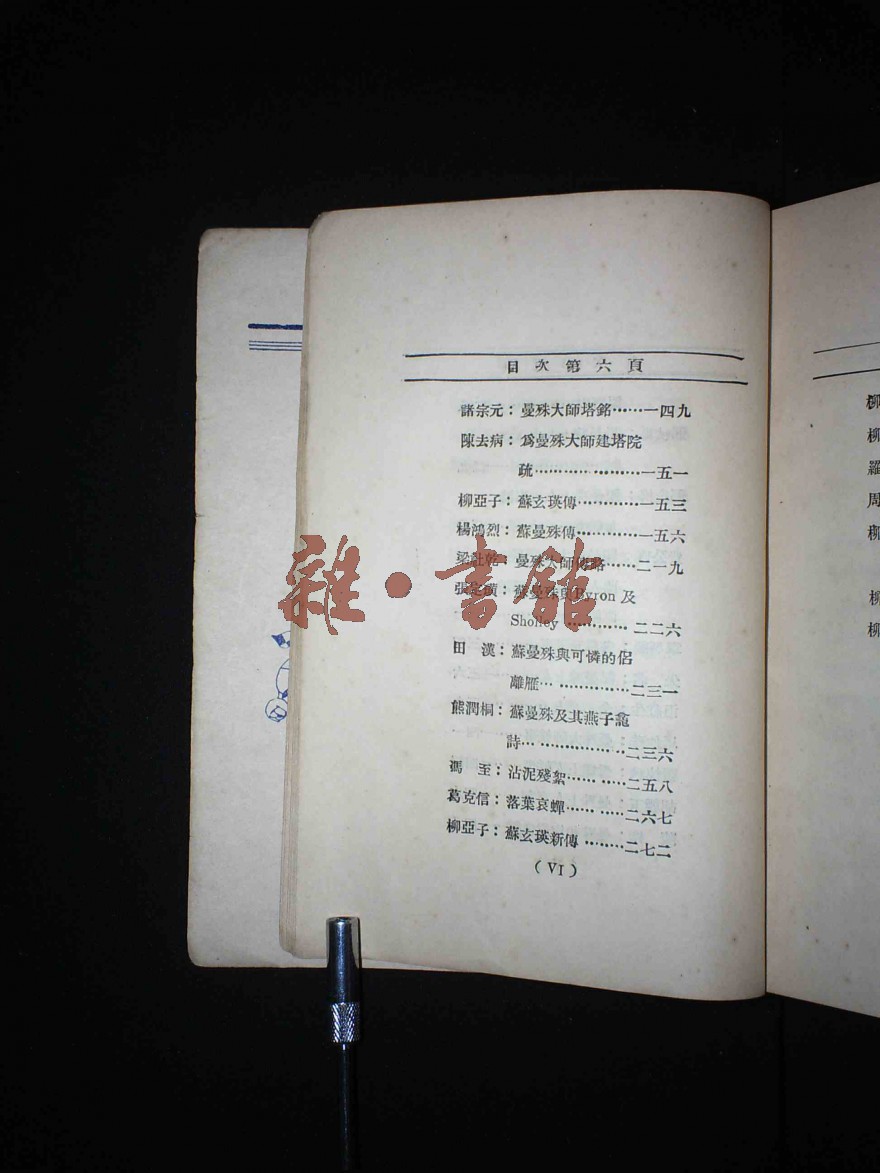 目次第六頁
諸宗元：曼殊大師塔銘……一四九
陳去病：爲曼殊大師建塔院
疏……………………一五一
柳亞子：蘇玄瑛傳…………一五三
楊鴻烈：蘇曼殊傳…………一五六
梁社乾：曼殊大師傳略……二一九
張定璜：蘇曼殊與Byron及
Shelley …………二二六
田　漢：蘇曼殊與可憐的侶
離雁………………二三一
熊潤桐：蘇曼殊及其燕子龕
詩…………………二三六
馮　至：沾泥殘絮………二五八
葛克信：落葉哀蟬………二六七
柳亞子：蘇玄瑛新傳………二七二
（VI）
柳
柳
羅
周
柳
柳
柳
雜·書館